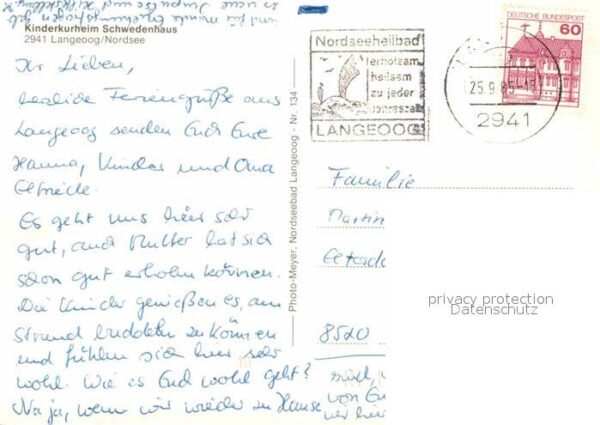 Kinderkurheim Schwedenhaus
2941 Langeoog/Nordsee
Ihr Lieben,
herzliche Feriengrüße aus
Langeoog senden Euch Eure
Hanna, Kinder und Oma
Elfriede.
Es geht uns hier sehr
gut, auch Mutter hat sich
schon gut erholen können.
Die Kinder genießen es, am
Strand buddeln zu können
und fühlen sich hier sehr
wohl. Wie es Euch wohl geht?
Na ja, wenn wir wieder zu Hause
sind,
von Eu
wir hier
und für manche Erziehungsfragen geb
es neue Impulse und Hilfestellung.
Photo-Meyer, Nordseebad Langeoog - Nr. 134
Nordseeheilbad
erholsam
heilsam
zu jeder
Jahreszeit
LANGEOOG
25.9.85
2941
DEUTSCHE BUNDESPOST
60
Familie
Martin
8520
privacy protection
Datenschutz